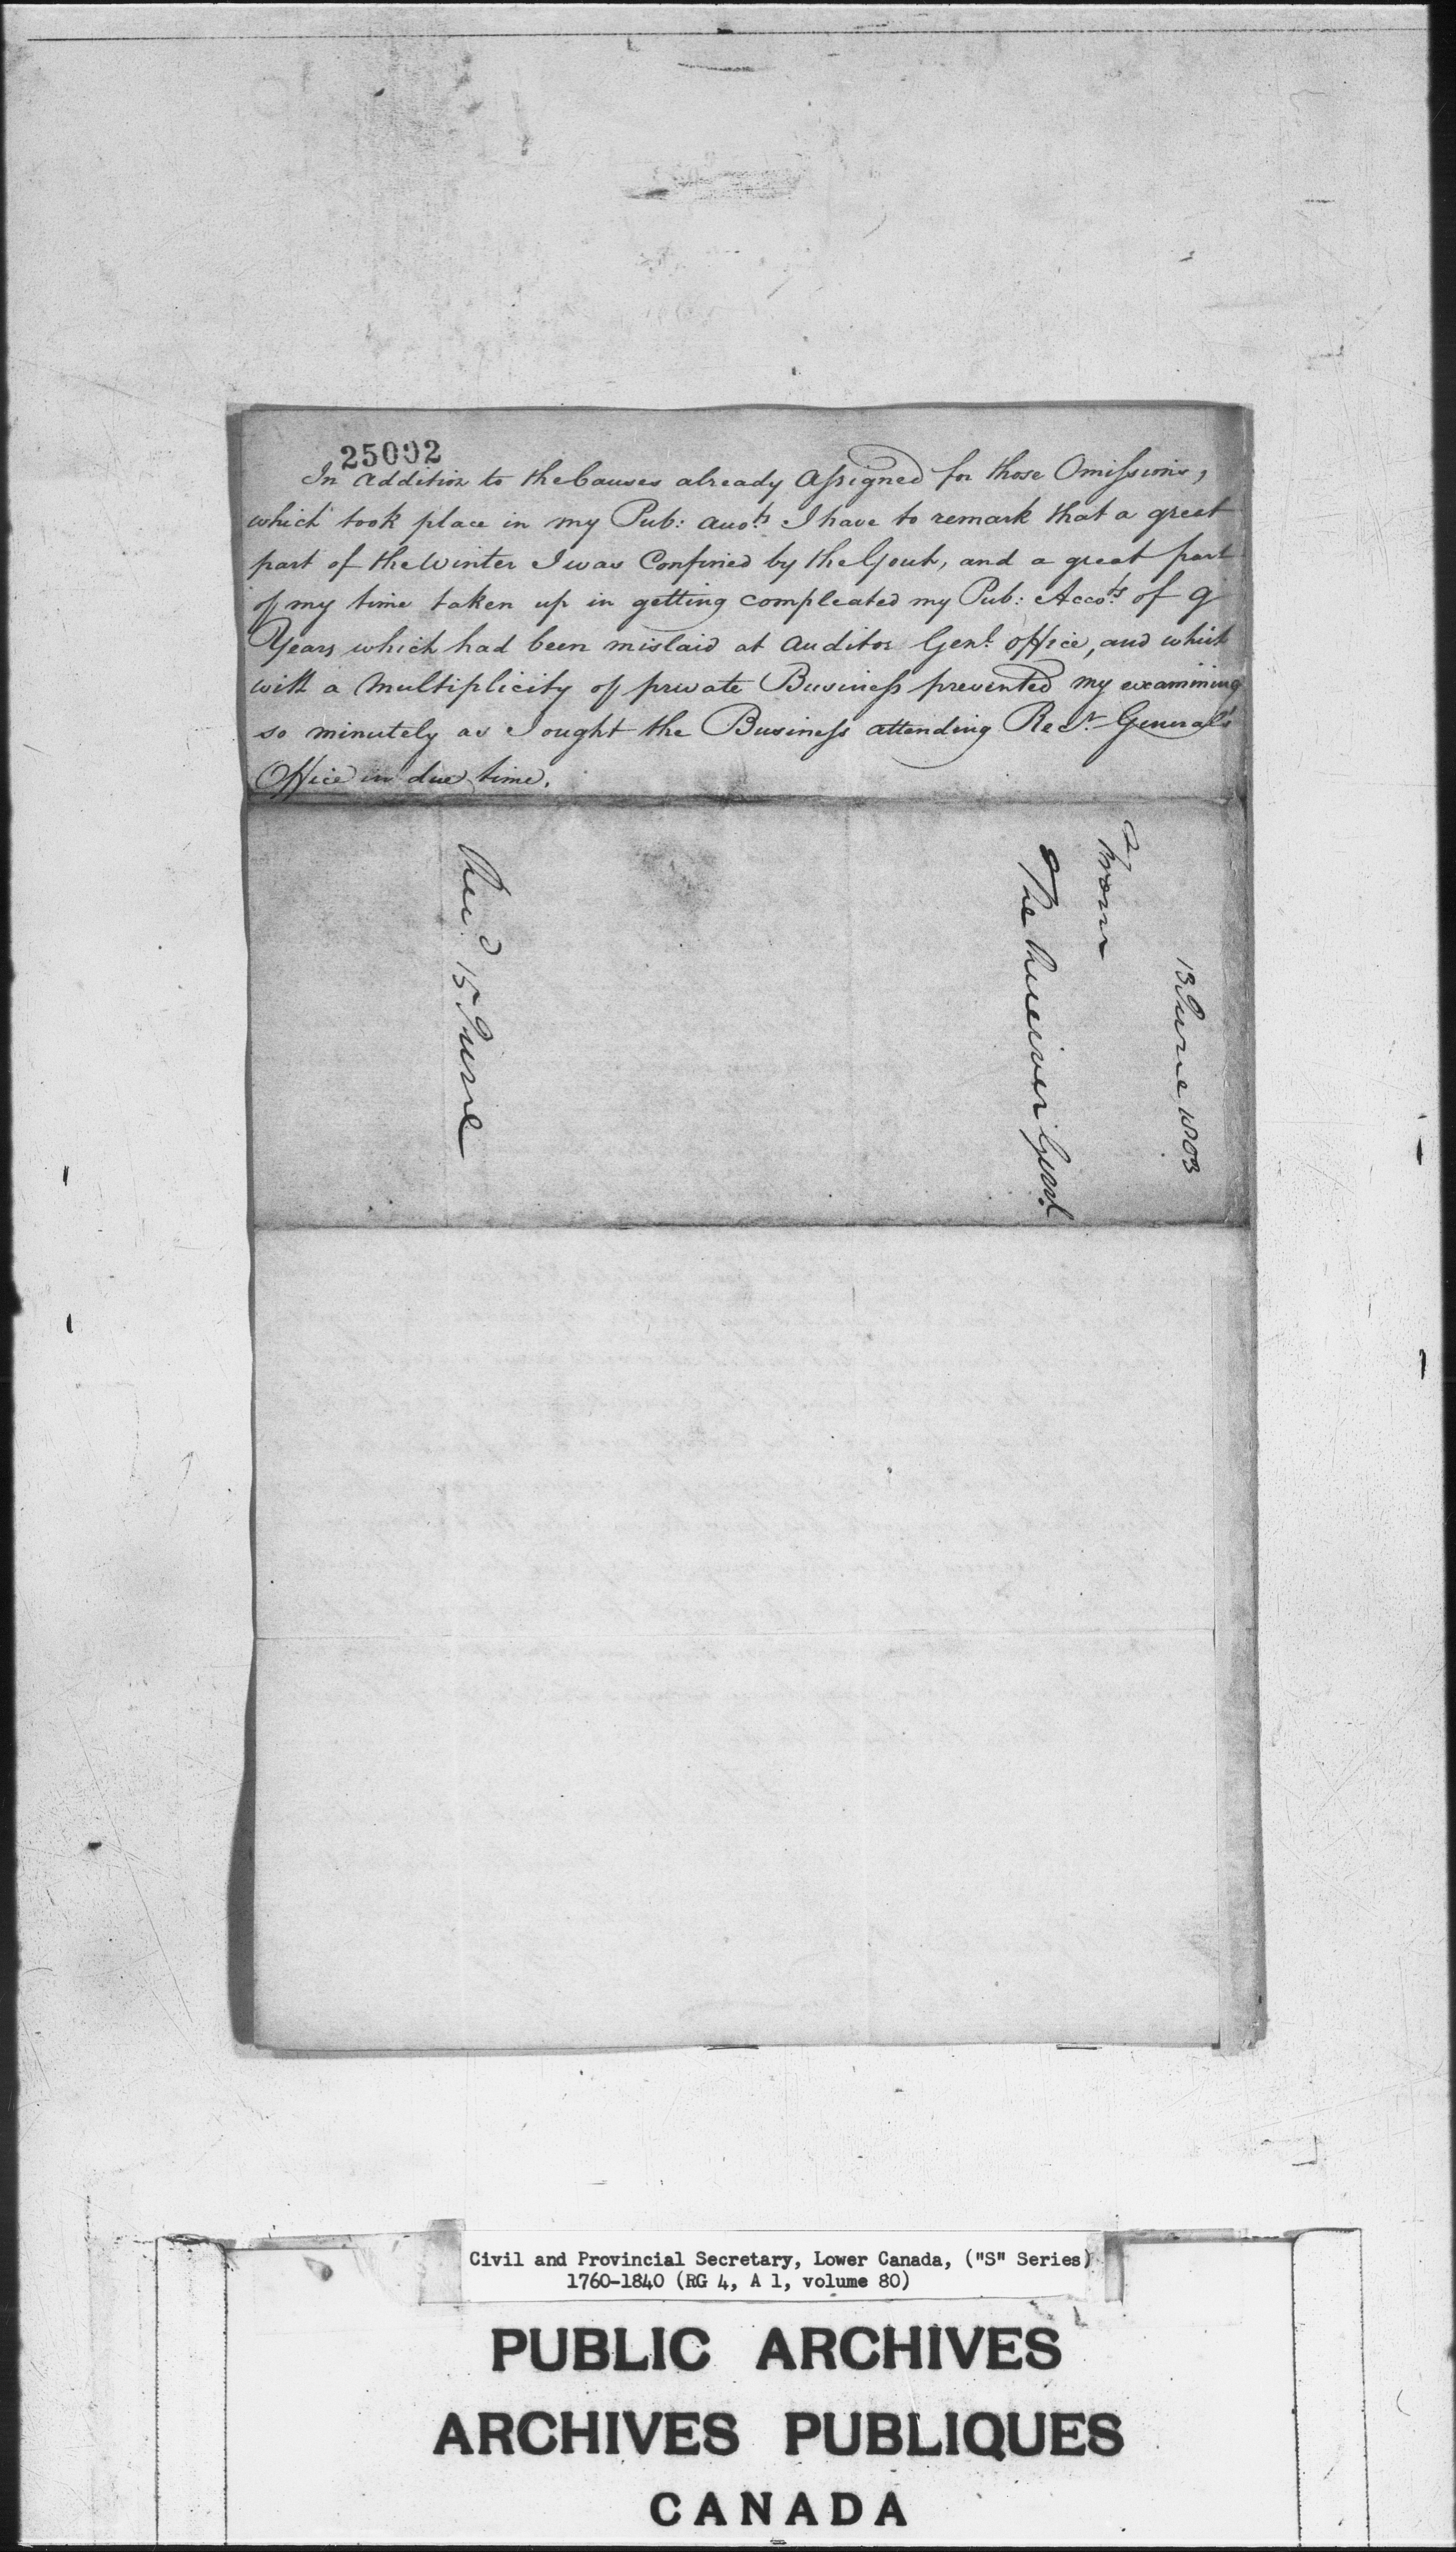 25002
In addition to the Causes already Assigned for those Omissions,
which took place in my Pub: Accots I have to remark that a great
part of the Winter I was Confined by the Gout, and a great part
of my time taken up in getting compleated my Pub: Accots of 9
Years which had been mislaid at Auditor Genl. office, and which
with a Multiplicity of private Business prevented my examining
so minutely as I ought the Business attending Recr. General's
Office in due time.
13 June 1803
From
The Receiver Genl.
Recd. 15 June
Civil and Provincial Secretary, Lower Canada, ("S" Series)
1760-1840 (RG 4, A 1, volume 80)
PUBLIC ARCHIVES
ARCHIVES PUBLIQUES
CANADA